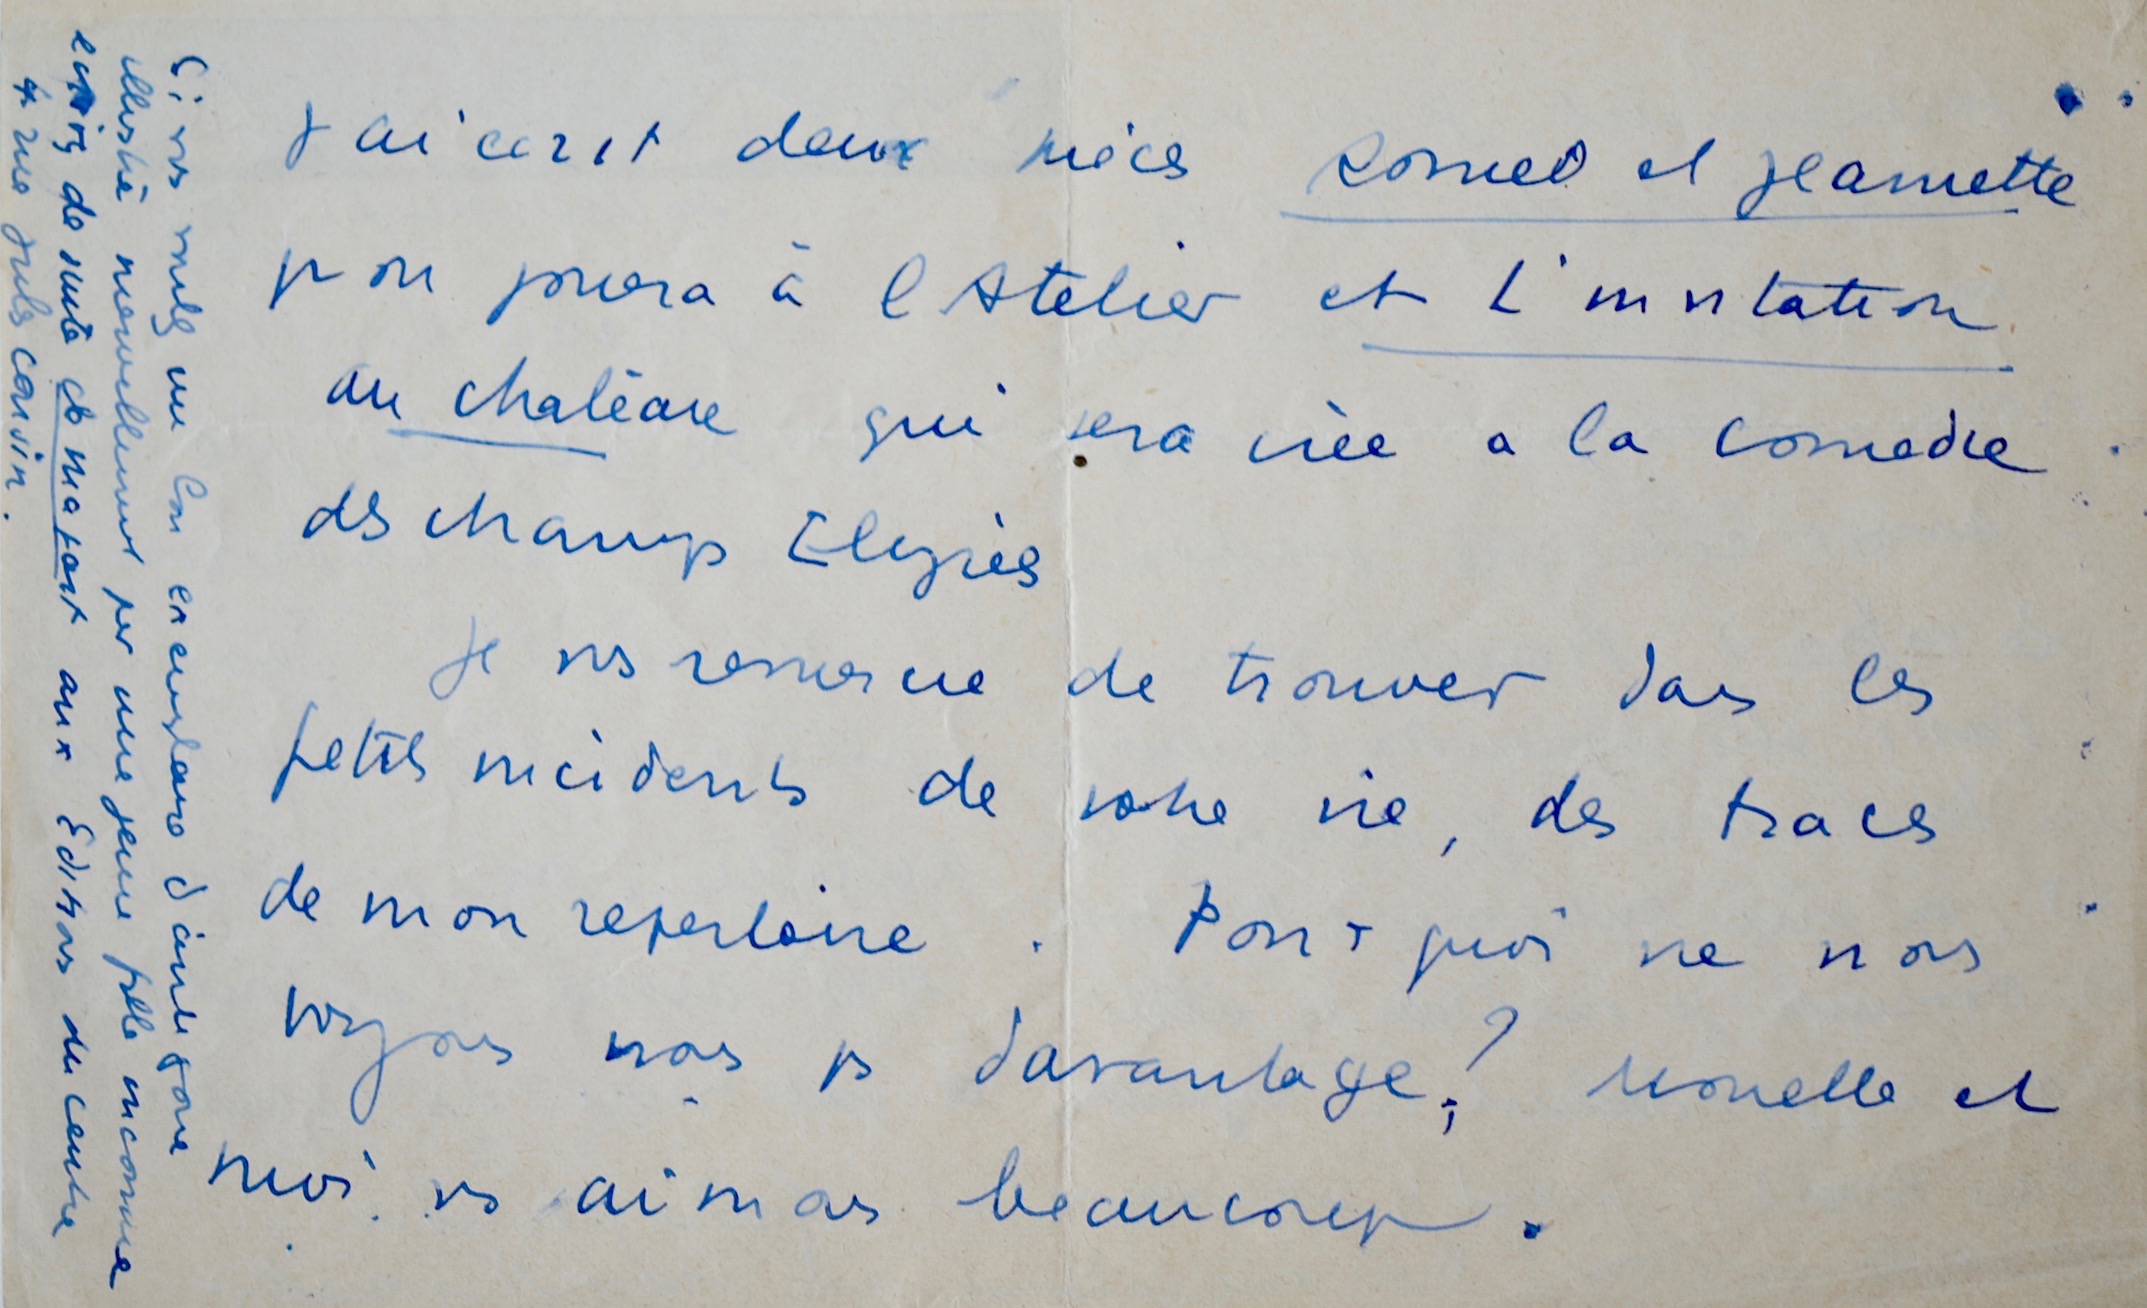 J'ai ecrit deux pièces Romeo et Jeannette
qu on jouera à l Atelier et L'invitation
au chatêau qui sera crèe a la comedie
des champs Elysèes
Je vs remercie de trouver dans les
petits incidents de votre vie, des traces
de mon repertoire. Pourquoi ne nous
voyons nous ps davantage? Monelle et
moi vs aimons beaucoup.
Si vs voulez un bon exemplaire d'antigone
illustré merveilleusement par une jeune fille inconnue
ecrivez de suite de ma part aux Editions du centre
4 rue Jules Cousin.